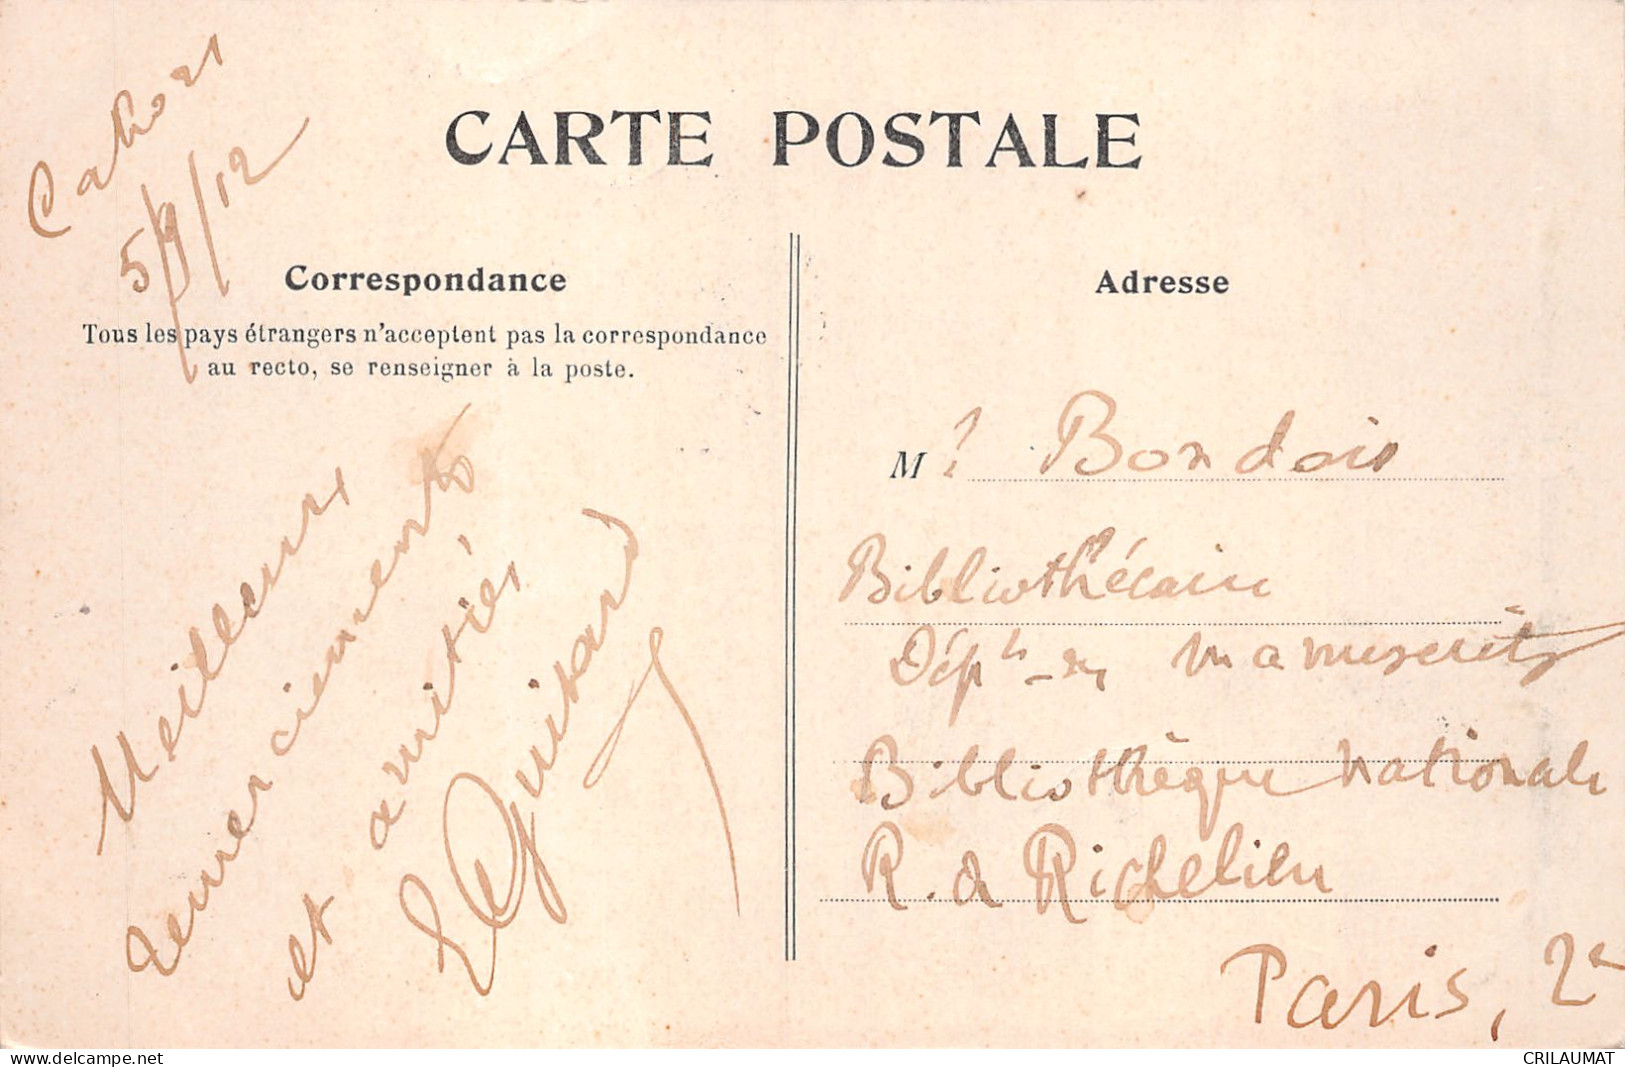 Cahors
5/9/12
CARTE POSTALE
Correspondance
Tous les pays étrangers n'acceptent pas la correspondance
au recto, se renseigner à la poste.
Meilleurs
remerciements
et amitiés
Guitard
Adresse
Mr Bondois
Bibliothécaire
Dépt des manuscrits
Bibliothèque nationale
R. de Richelieu
Paris, 2e
www.delcampe.net
CRILAUMAT